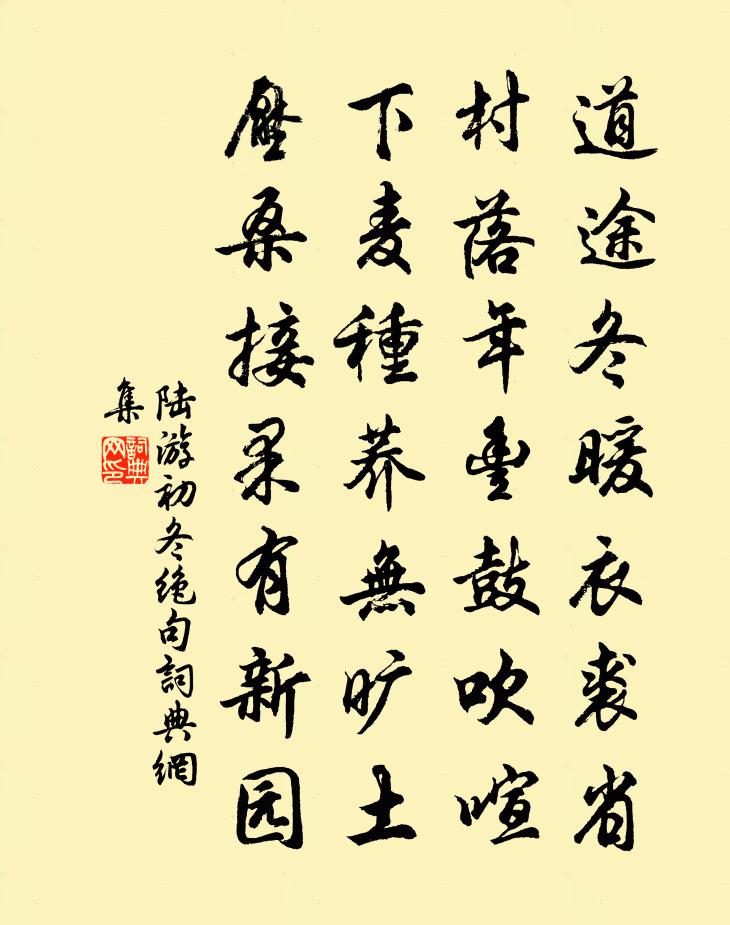 道途冬暖衣裘省
村落年豊鼓吹喧
下麦種荞無旷土
壓桑接果有新园
陆游初冬絶句詞典網
集
詞典網印